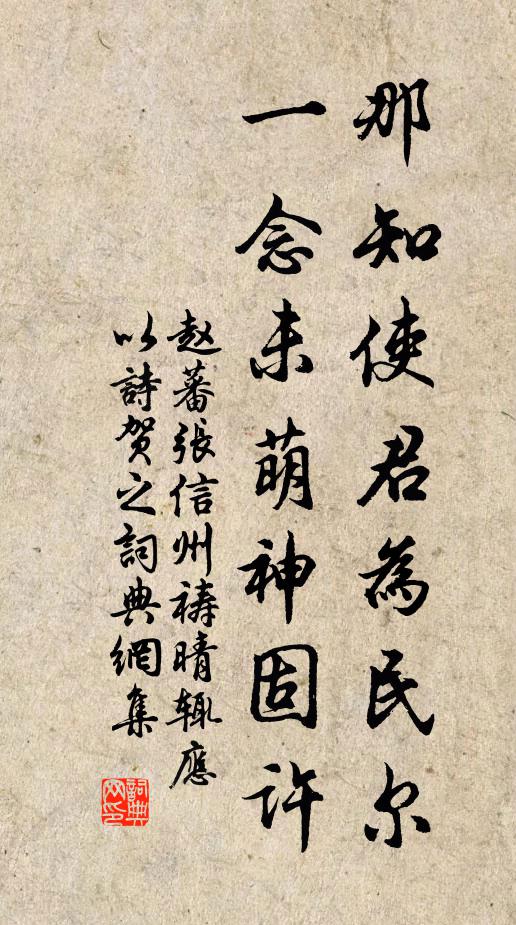 那知使君為民尔
一念未萌神固许
赵蕃張信州禱晴辄應
以詩贺之詞典網集
詞典网印